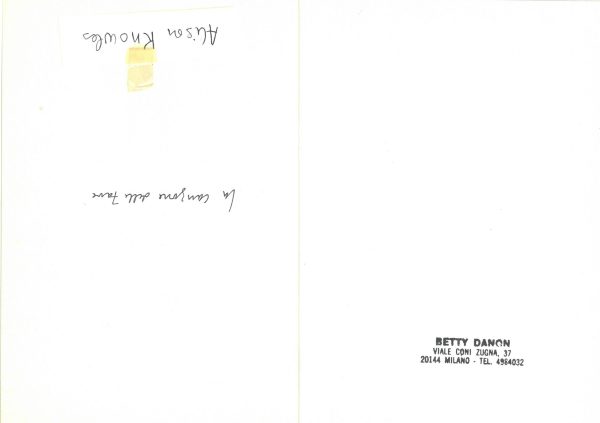 Alison Knowles
La canzone delle fave
BETTY DANON
VIALE CONI ZUGNA, 37
20144 MILANO - TEL. 4984032